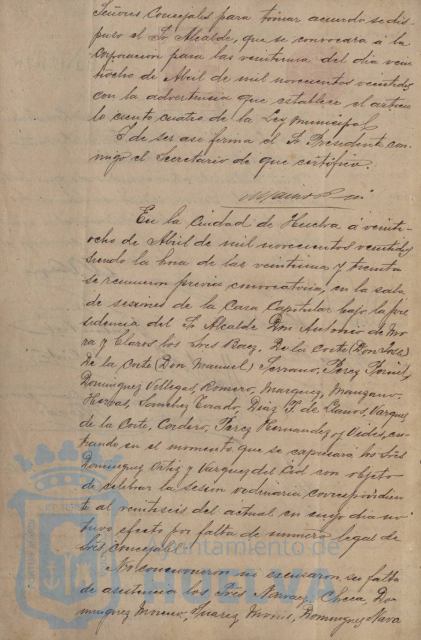 Señores Concejales para tomar acuerdo se dis-
puso el Sr. Alcalde, que se convocara á la
Corporación para las veintiuna del día vein
tiocho de Abril de mil novecientos veintidos
con la advertencia que establece el artícu
lo ciento cuatro de la Ley Municipal.
Y de ser así firma el Sr. Presidente con-
migo el Secretario de que certifico.
En la Ciudad de Huelva á veinti-
ocho de Abril de mil novecientos veintidos
siendo la hora de las veintiuna y treinta
se reunieron previa convocatoria, en la sala
de sesiones de la Casa Capitular bajo la pre
sidencia del Sr. Alcalde Don Antonio de Mo
ra y Claros los Sres Baez, De la Corte (Don José)
De la Corte (Don Manuel) Serrano, Perez
Dominguez Villegas, Romero, Marquez, Manzano,
Sanchez Tirado, Diaz F. de Llanos, Vazquez
de la Corte, Cordero, Perez Hernandez y Vides, en-
trando en el momento que se expresara los Sres
Dominguez Ortiz y Vazquez del Cid con objeto
de celebrar la sesion ordinaria correspondien
te al veintiseis del actual en cuyo día no
tuvo efecto por falta de número legal de
Sres Concejales.
No concurrieron ni excusaron su falta
de asistencia los Sres Narvaez, Checa, Do-
minguez Moreno, Suarez, Dominguez Nava
Ayuntamiento de
HUELVA